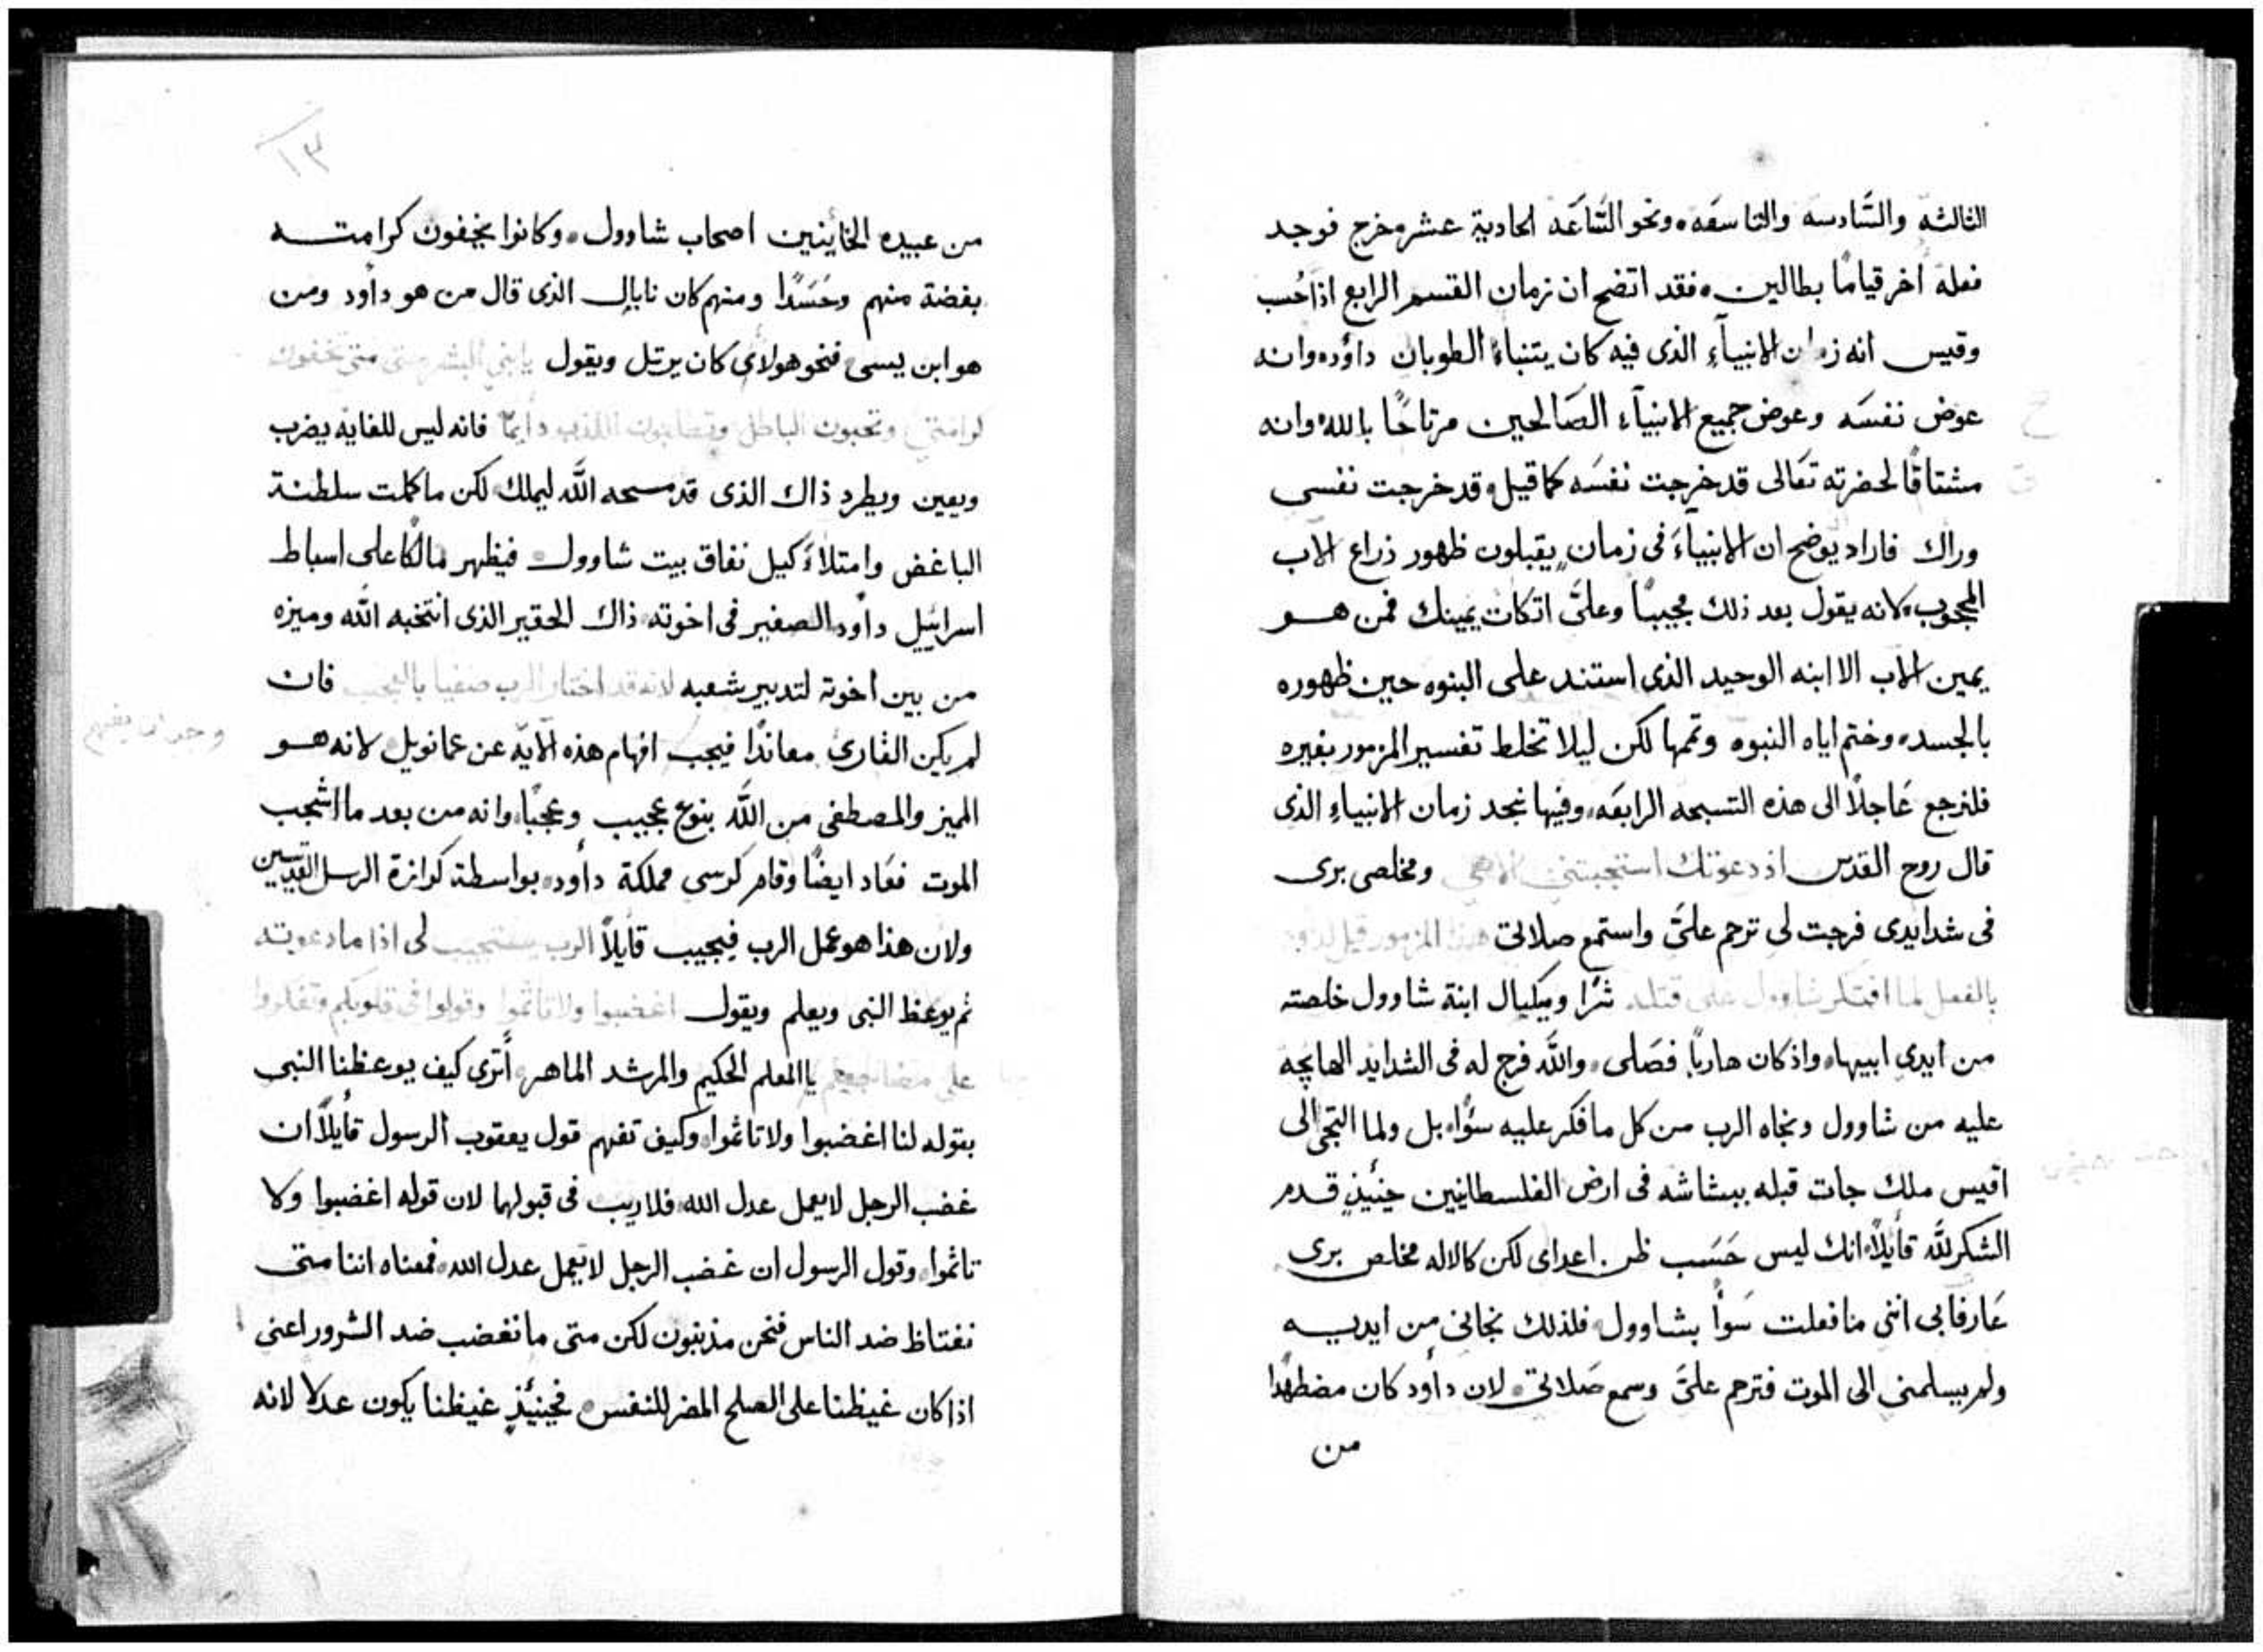 الثالثه والسَّادسه والتاسعَه ونحو السَّاعَه الحادية عشر خرج فوجد
فعلة أخر قيامًا بطالين فقد اتضح ان زمان القسم الرابع اذا حُسب
وقيس انه زمان الانبيآءِ الذى فيه كان يتنباء الطوبان داوُد وانه
عوض نفسَه وعوض جميع الانبيآءِ الصَالحين مرتاحًا بالله وانه
مشتاقًا لحضرته تعَالى قد خرجت نفسَه كما قيل قد خرجت نفسى
وراك فاراد يوضح ان الانبيآءَ فى زمانٍ يقبلون ظهور ذراع الاب
المحجوب لانه يقول بعد ذلك مجيبًا وعلىَّ اتكات يمينك فمن هو
يمين الاب الا ابنه الوحيد الذى استند على البنوه حين ظهوره
بالجسد وختم اياه النبوه وتممها لكن ليلا تخلط تفسير المزمور بغيره
فلنرجع عَاجلاً الى هذه التسبحه الرابعَه وفيها نجد زمان الانبياءِ الذى
قال روح القدس اذ دعوتك استجبتنى الاهى ومخلصى برى
فى شدايدى فرجت لى ترحم علىَّ واستمع صلاتى هذا المزمور قيل لداود
بالفعل لما افتكر شاوول على قتله شرًا وميكيال ابنة شاوول خلصته
من ايدى ابيها واذ كان هاربًا فصَلى والله فرج له فى الشدايد الهايجه
عليه من شاوول ونجاه الرب من كل ما فكر عليه سُوًا بل ولما التجى الى
اقيس ملك جات قبله ببشاشه فى ارض الفلسطانيين حينيذٍ قدم
الشكر للَّه قأيلاً انك ليس حَسَب ظن اعداى لكن كالاله مخلص برى
عَارفا بى اننى ما فعلت سَواً بشاوول فلذلك نجانى من ايديه
ولم يسلمنى الى الموت فترحم علىَّ وسمع صَلاتى لان داود كان مضطهدًا
من
١٣
من عبيده الخاينين اصحاب شاوول وكانوا يخفون كرامته
بغضة منهم وحَسَدًا ومنهم كان نابال الذى قال من هو داود ومن
هو ابن يسى فنحو هولاى كان يرتل ويقول يابنى البشر حتى متى تخفون
كرامتى وتحبون الباطل وتطلبون الكذب دايمًا فانه ليس للغايه يضرب
ويعين ويطرد ذاك الذى قد مسحه اللَّه ليملك لكن ما كملت سلطنة
الباغض وامتلأَ كيل نفاق بيت شاوول فيظهر مالكًا على اسباط
اسرائيل داود الصغير فى اخوته ذاك الحقير الذى انتخبه الله وميزه
من بين اخوته لتدبير شعبه لانه قد اختار الرب صفيا بالعجب فان
لم يكن القارى معاندًا فيجب افهام هذه الآيه عن عمانويل لانه هو
المميز والمصطفى من اللَّه بنوع عجيب وعجبًا وانه من بعد ما اشجب
الموت فعَاد ايضًا وقام كرسى مملكة داود بواسطة كرازة الرسل القديسين
ولان هذا هو عمل الرب فيجيب قأيلاً الرب يستجيب لى اذا ما دعوته
ثم يوعظ النبى ويعلم ويقول اغضبوا ولا تاثموا وقولوا فى قلوبكم وتفكروا
على مضاجعكم يا المعلم الحكيم والمرشد الماهر أترى كيف يوعظنا النبى
بقوله لنا اغضبوا ولا تاثموا وكيف تفهم قول يعقوب الرسول قأيلاً ان
غضب الرجل لا يعمل عدل الله فلاريب فى قبولهما لان قوله اغضبوا ولا
تاثموا وقول الرسول ان غضب الرجل لا يعمل عدل الله فمعناه اننا متى
نغتاظ ضد الناس فنحن مذنبون لكن متى ما نغضب ضد الشرور اعنى
اذا كان غيظنا على الصلح المضر للنفس فحينيذٍ غيظنا يكون عدلا لانه